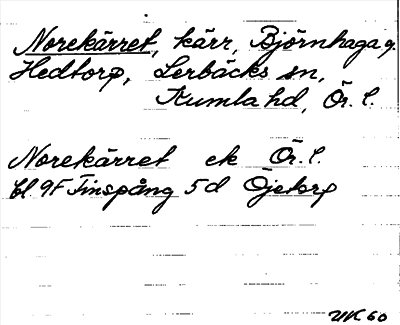 Norekärret, kärr, Björnhaga o.
Hedtorp, Lerbäcks sn,
Kumla hd, Ör. l.
Norekärret ek Ör. l.
bl. 9F Finspång 5d Öjetorp
UK 60